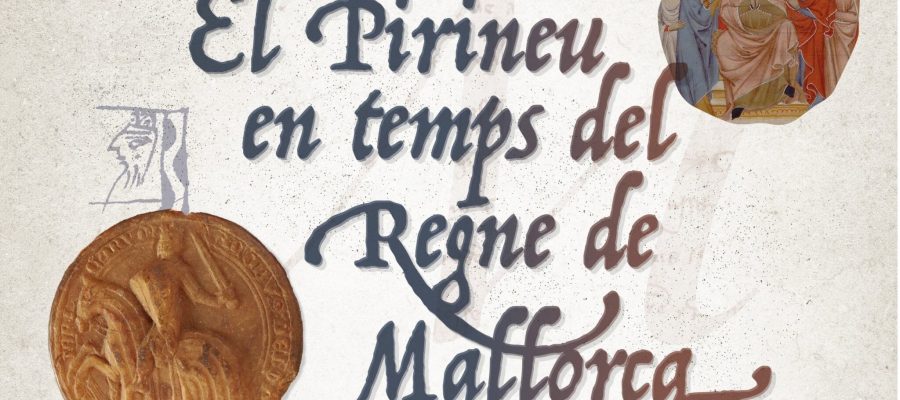 El Pirineu
en temps del
Regne de
Mallorca